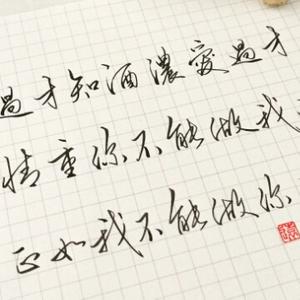 過才知酒濃愛過才
情重你不能做我
正如我不能做你